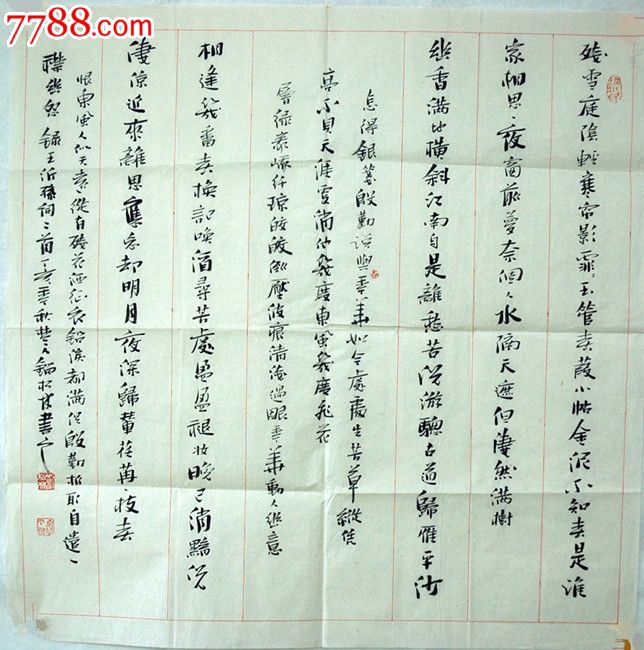 7788.com
殘雪庭陰輕寒帘影霏玉管春葭小帖金泥不知春是誰
家相思一夜窗前夢奈個人水隔天遮但凄然滿樹
幽香滿地橫斜江南自是離愁苦況游驄古道歸雁平沙
怎得銀箋殷勤說與年華如今處處生芳草縱凭
高不見天涯更消他幾度東風幾度飛花
層綠峨峨纤琼皎皎倒壓波痕清淺過眼年華動人幽意
相逢幾番春換記喚酒尋芳處盈盈褪妝晚已消黯況
凄涼近來離思應忘却明月夜深歸輦荏苒一枝春
恨東風人似天遠縱有殘花洒征衣鉛淚都滿但殷勤折取自遣一
襟幽怨錄王沂孫詞二首丁亥年秋書之